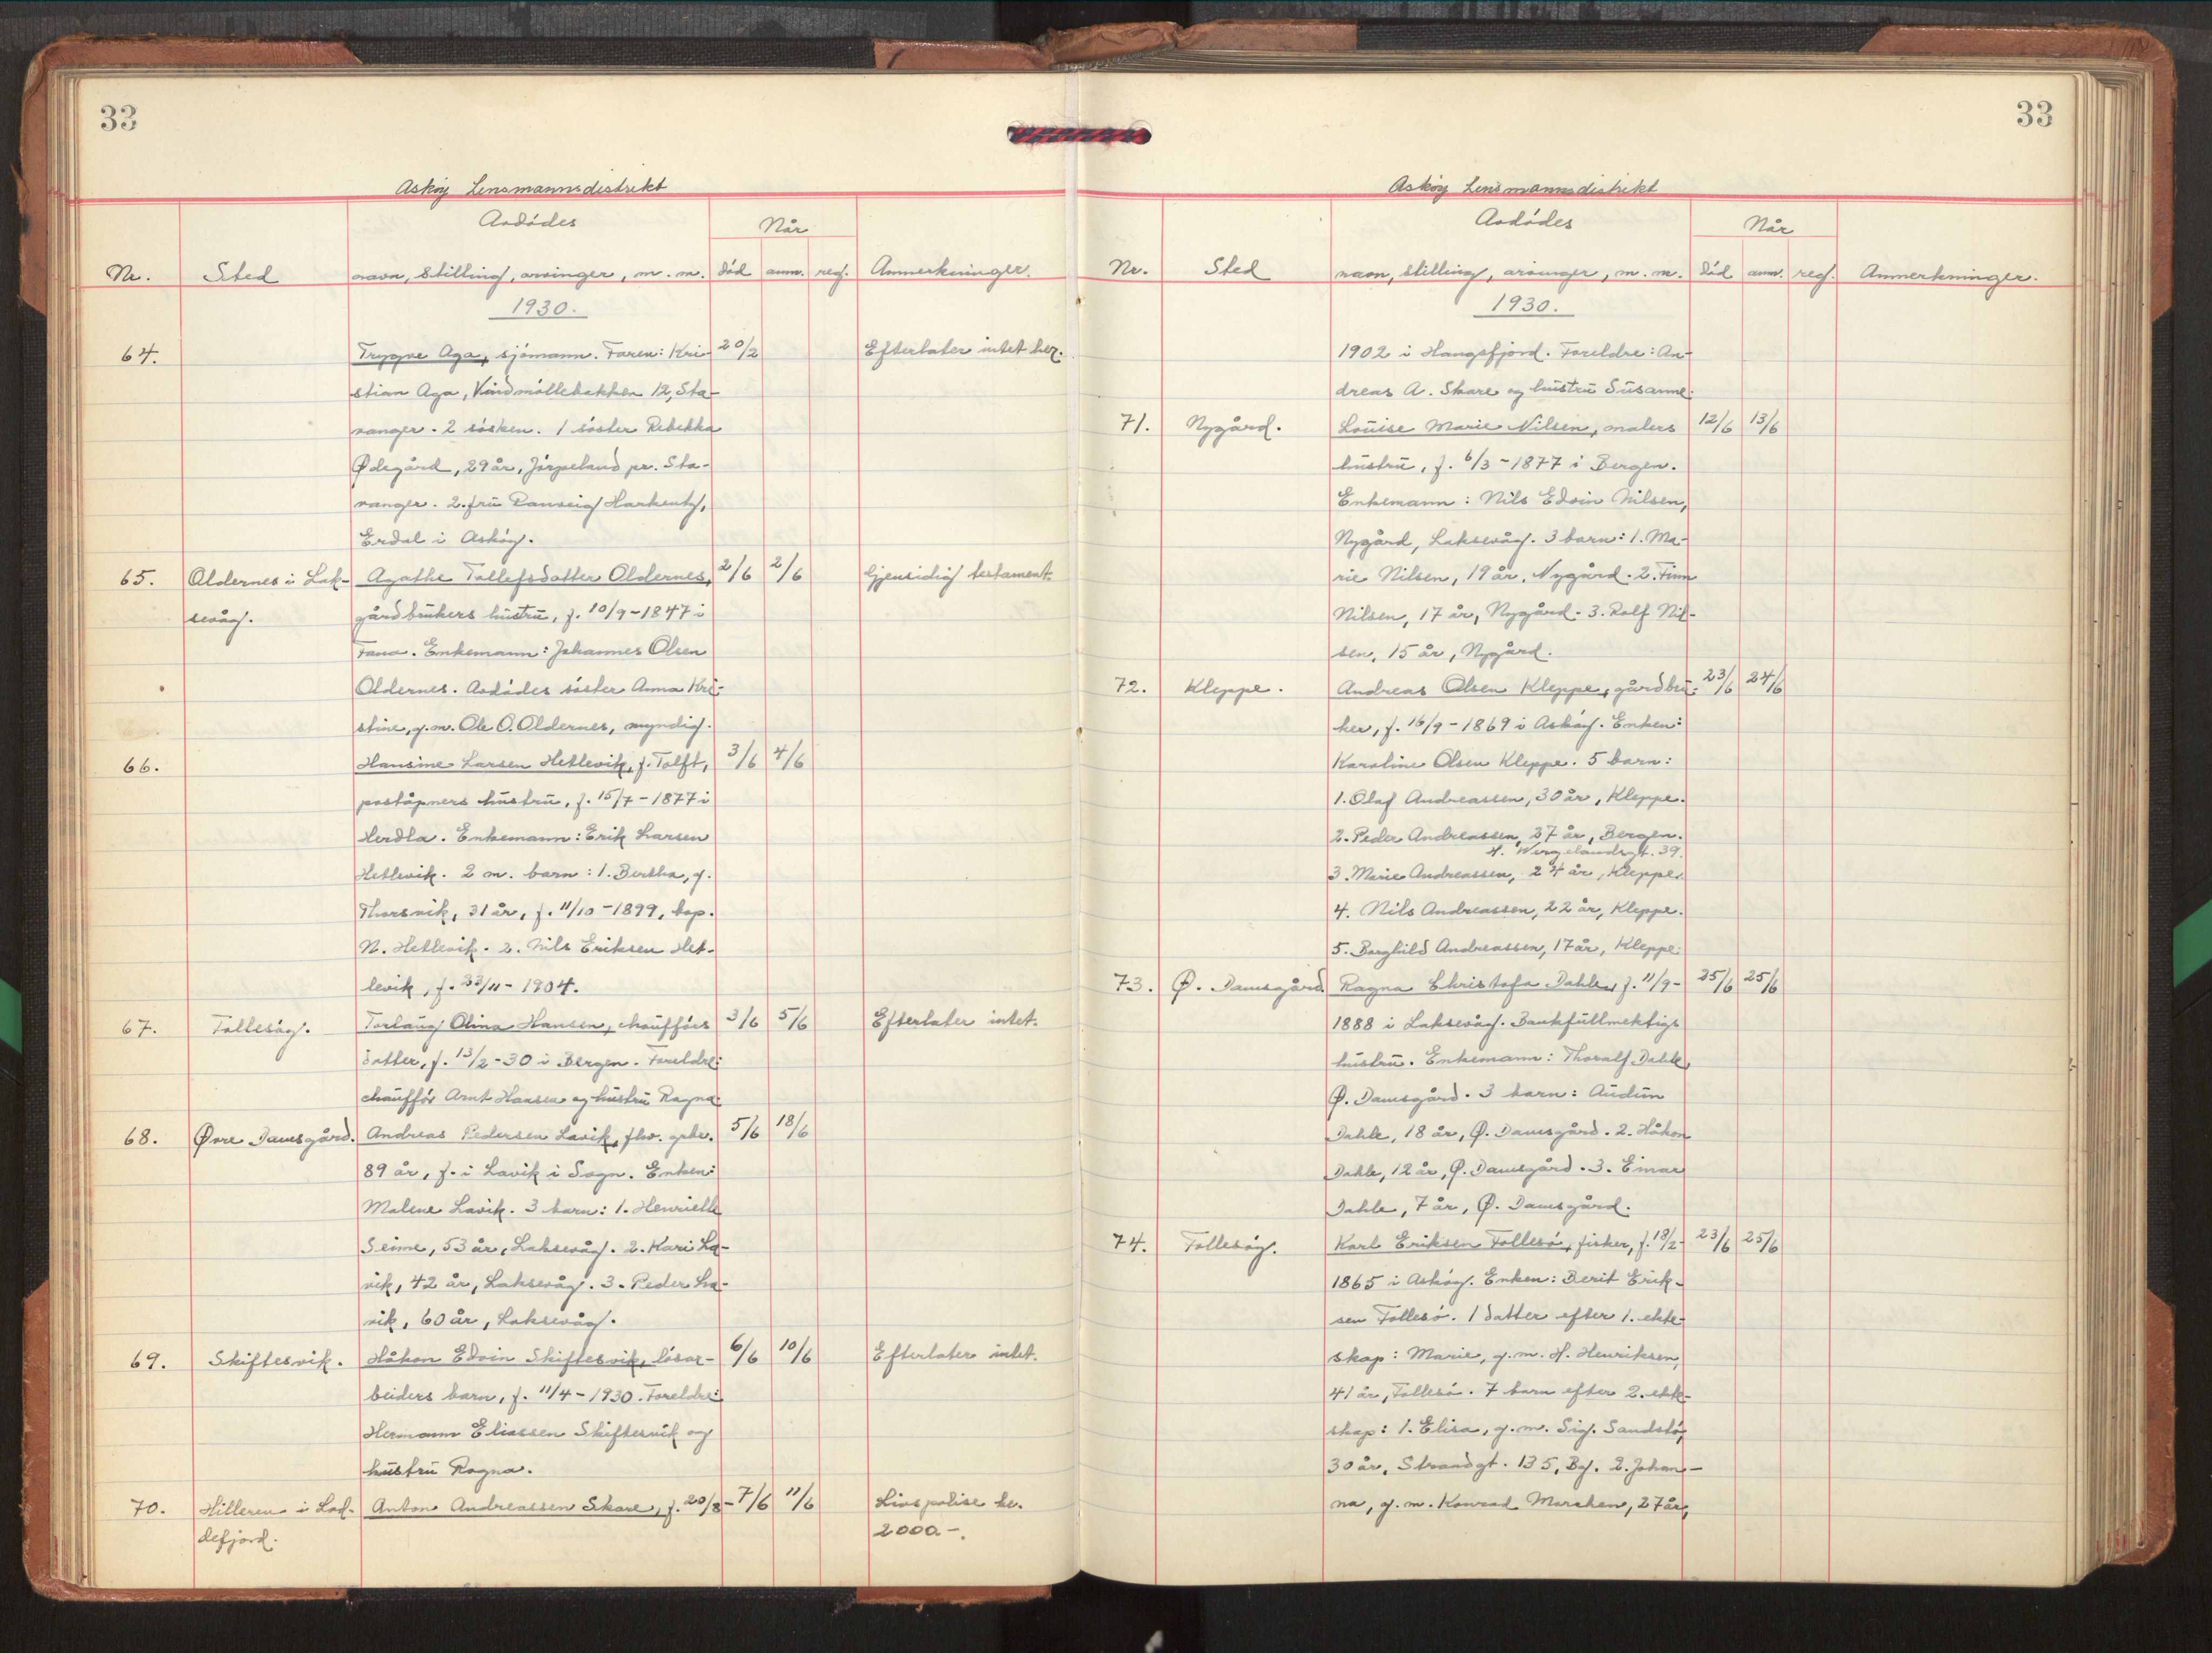 33
Askøy Lensmannsdistrikt
Avdødes
Når
Nr. Sted navn, stilling, arvinger, m. m. død anm. reg. Anmerkninger.
1930.
64. Trygve Aga, sjømann. Faren: Kri- 20/2 Efterlater intet her.
stian Aga, Vindmøllebakken 12, Sta-
vanger. 2 søsken. 1 søster Rebekka
Ødegård, 29 år, Jørpeland pr. Sta-
vanger. 2. fru
Erdal i Askøy.
65. Oldernes i Lak- Agathe Tollefsdatter Oldernes, 2/6 2/6 Gjensidig testament.
sevåg. gårdbrukers hustru, f. 10/9-1847 i
Fana. Enkemann: Johannes Olsen
Oldernes. Avdødes søster Anna Kri-
stine, g.m. Ole O. Oldernes, myndig.
66. Hansine Larsen Hetlevik, f. Tolft, 3/6 4/6
poståpners hustru, f. 15/7-1877 i
Herdla. Enkemann: Erik Larsen
Hetlevik. 2 m. barn: 1. Bertha, g.
Thorsvik, 31 år, f. 11/10-1899, bop.
N. Hetlevik. 2. Nils Eriksen Het-
levik, f. 23/11-1904.
67. Follesøy. Torlaug Olina Hansen, chaufførs 3/6 5/6 Efterlater intet.
datter, f. 13/2-30 i Bergen. Foreldre:
chauffør Arnt Hansen og hustru Ragna.
68. Øvre Damsgård. Andreas Pedersen Lavik, fhv. grbr. 5/6 18/6
89 år, f. i Lavik i Sogn. Enken:
Malene Lavik. 3 barn: 1. Henriette
Seime, 53 år, Laksevåg. 2. Kari La-
vik, 42 år, Laksevåg. 3. Peder La-
vik, 60 år, Laksevåg.
69. Skiftesvik. Håkon Edvin Skiftesvik, løsar- 6/6 10/6 Efterlater intet.
beiders barn, f. 11/4-1930. Foreldre:
Hermann Eliassen Skiftesvik og
hustru Ragna.
70. Hilleren i Lod- Anton Andreassen Skare, f. 20/8- 7/6 11/6 Livspolise kr.
defjord. 2000-.
33
Askøy Lensmannsdistrikt
Avdødes
Når
Nr. Sted navn, stilling, arvinger, m. m. død anm. reg. Anmerkninger.
1930.
1902 i Haugsfjord. Foreldre: An-
dreas A. Skare og hustru Susanne.
71. Nygård. Louise Marie Nilsen, malers 12/6 13/6
hustru, f. 6/3-1877 i Bergen.
Enkemann: Nils Edvin Nilsen,
Nygård, Laksevåg. 3 barn: 1. Ma-
rie Nilsen, 19 år, Nygård. 2. Finn
Nilsen, 17 år, Nygård. 3. Rolf Nil-
sen, 15 år, Nygård.
72. Kleppe. Andreas Olsen Kleppe, gårdbru- 23/6 24/6
ker, f. 16/9-1869 i Askøy. Enken:
Karoline Olsen Kleppe. 5 barn:
1. Olaf Andreassen, 30 år, Kleppe.
2. Peder Andreassen, 37 år, Bergen.
H. Wergelandsgt. 39.
3. Marie Andreassen, 24 år, Kleppe.
4. Nils Andreassen, 22 år, Kleppe.
5. Borghild Andreassen, 17 år, Kleppe.
73. Ø. Damsgård. Ragna Christofa Dahle, f. 11/9- 25/6 25/6
1888 i Laksevåg. Bankfullmektigs
hustru. Enkemann: Thoralf Dahle,
Ø. Damsgård. 3 barn: Audun
Dahle, 18 år, Ø. Damsgård. 2. Håkon
Dahle, 12 år, Ø. Damsgård. 3. Einar
Dahle, 7 år, Ø. Damsgård.
74. Follesøy. Karl Eriksen Follesø, fisker, f. 18/2- 23/6 25/6
1865 i Askøy. Enken: Berit Erik-
sen Follesø. 1 datter efter 1. ekte-
skap: Marie, g.m. H. Henriksen,
41 år, Follesø. 7 barn efter 2. ekte-
skap: 1. Elisa, g.m. Sig. Sandslø,
30 år, Strandgt. 135, Bg. 2. Johan-
na, g.m. Konrad 27 år,